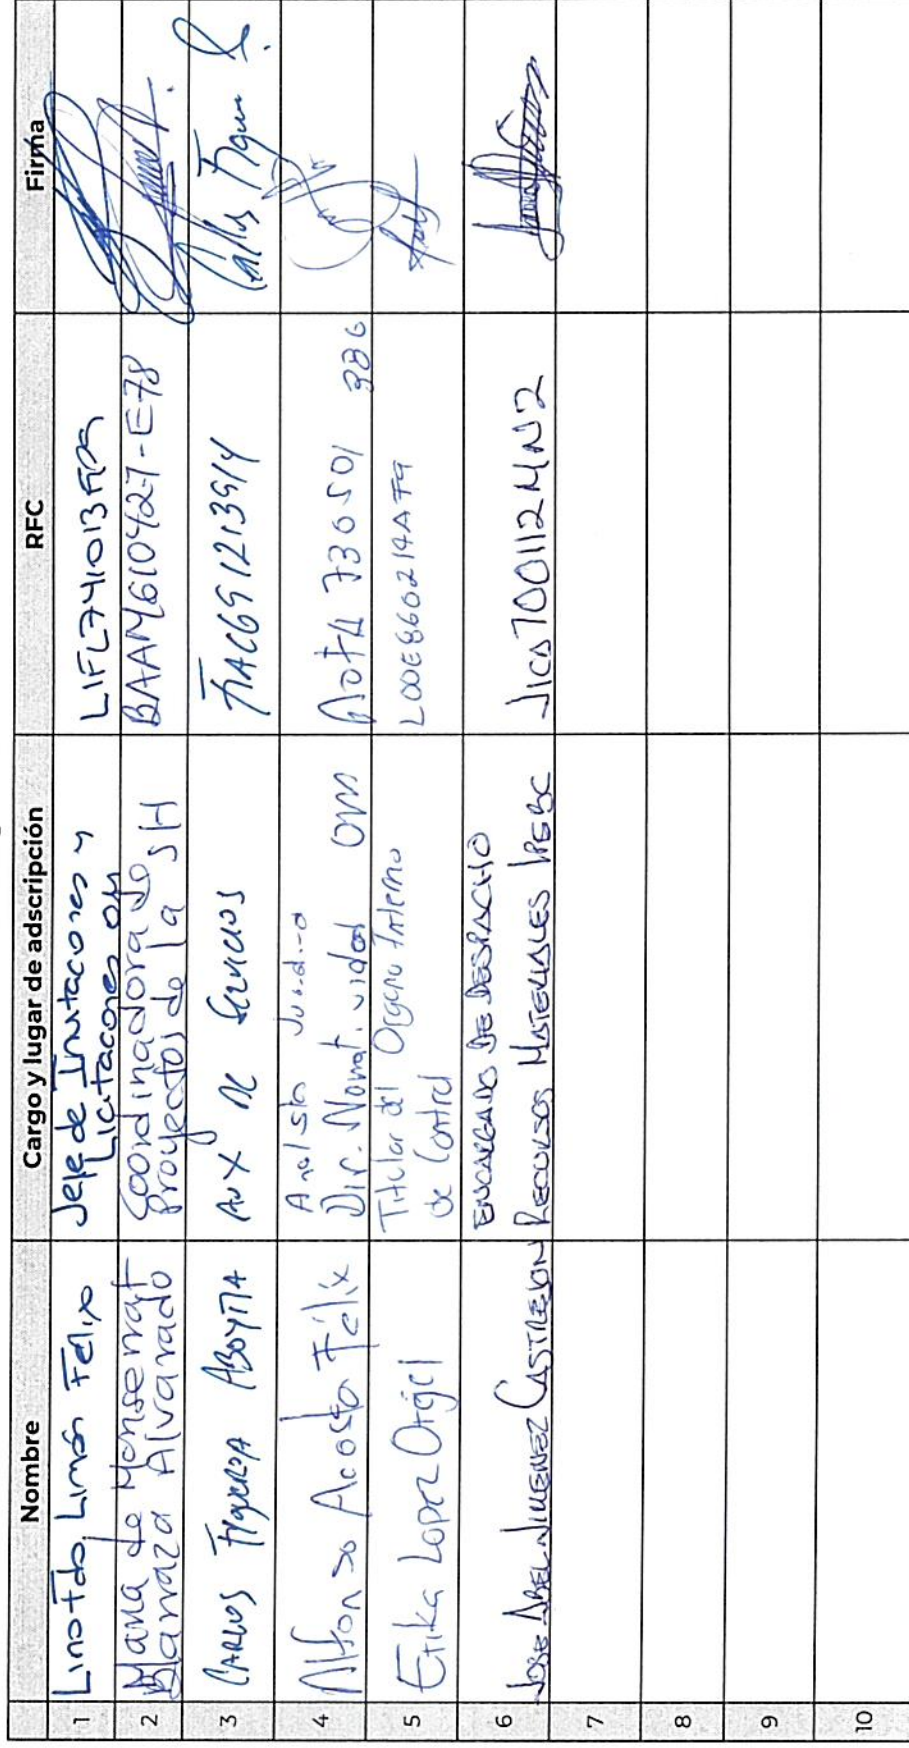 Nombre Cargo y lugar de adscripción RFC Firma
1 Lino Fdo, Limón Felix Jefe de Invitaciones y Licitaciones OM LIFL741013
2 Maria de Monserrat Barraza Alvarado Coordinadora de Proyectos de la SH BAAM610427-E78
3 CARLOS Figueroa ABOYTIA AUX DE Servicios FIAC691213914
4 Alfonso Acosta Félix Analista Juridico Dir. Normatividad OM 730501
5 Erika Lopez Orgel Titular del Organo Interno de Control LOOE860214AF9
6 JOSE ABEL JIMENEZ CASTREJON ENCARGADO DE DESPACHO RECURSOS MATERIALES JICA700112MN2
7
8
9
10